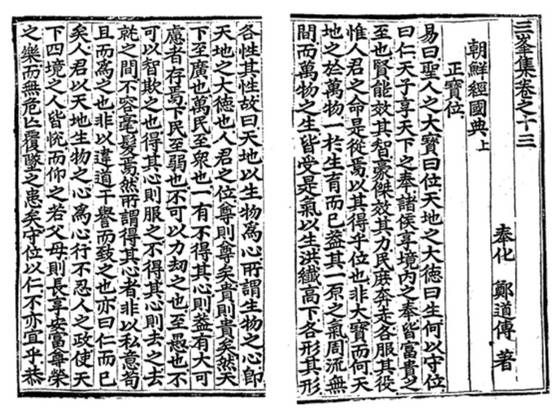 三峯集卷之十三
奉化 鄭道傳 著
朝鮮經國典上
正寶位
易曰聖人之大寶曰位天地之大德曰生何以守位
曰仁天子享天下之奉諸侯享境內之奉皆富貴之
至也賢能效其智豪傑效其力民庶奔走各服其役
惟人君之命是從焉以其得乎位也非大寶而何天
地之於萬物一於生育而已蓋其一原之氣周流無
間而萬物之生皆受是氣以生洪纖高下各形其形
各性其性故曰天地以生物爲心所謂生物之心卽
天地之大德也人君之位尊則尊矣貴則貴矣然天
下至廣也萬民至衆也一有不得其心則蓋有大可
慮者存焉下民至弱也不可以力劫之也至愚也不
可以智欺之也得其心則服之不得其心則去之去
就之間不容毫髮焉然所謂得其心者非以私意苟
且而爲之也非以違道干譽而致之也亦曰仁而已
矣人君以天地生物之心爲心行不忍人之政使天
下四境之人皆悅而仰之若父母則長享安富尊榮
之樂而無危亡覆墜之患矣守位以仁不亦宜乎恭